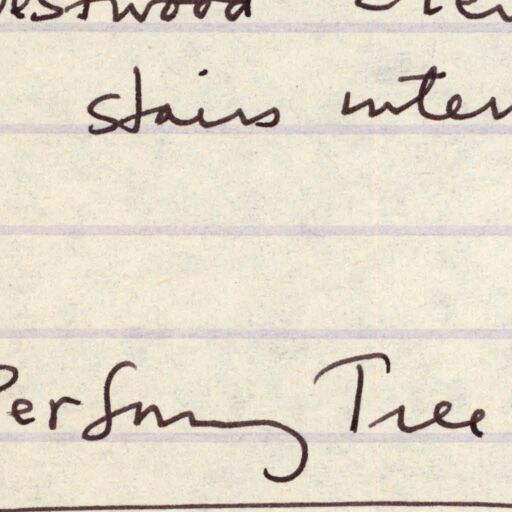 Westwood
stairs inter
Perfumy Tree